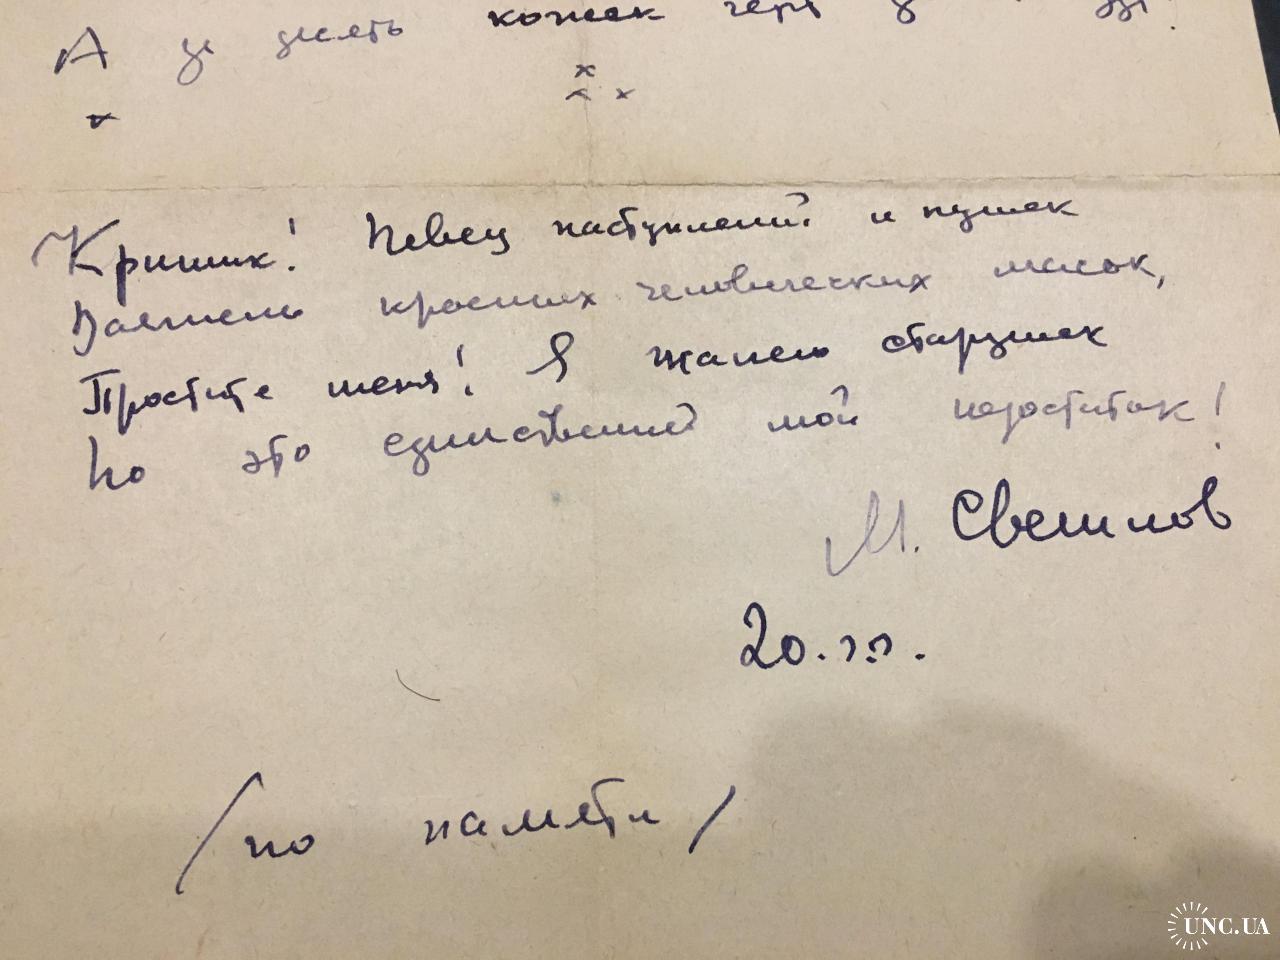 А за десять кошек
Критик! Певец наступлений и пушек
Ваятель красных человеческих масок,
Простите меня! Я жалею старушек
Но это единственный мой недостаток!
М. Светлов
20.
/по памяти/
UNC.UA